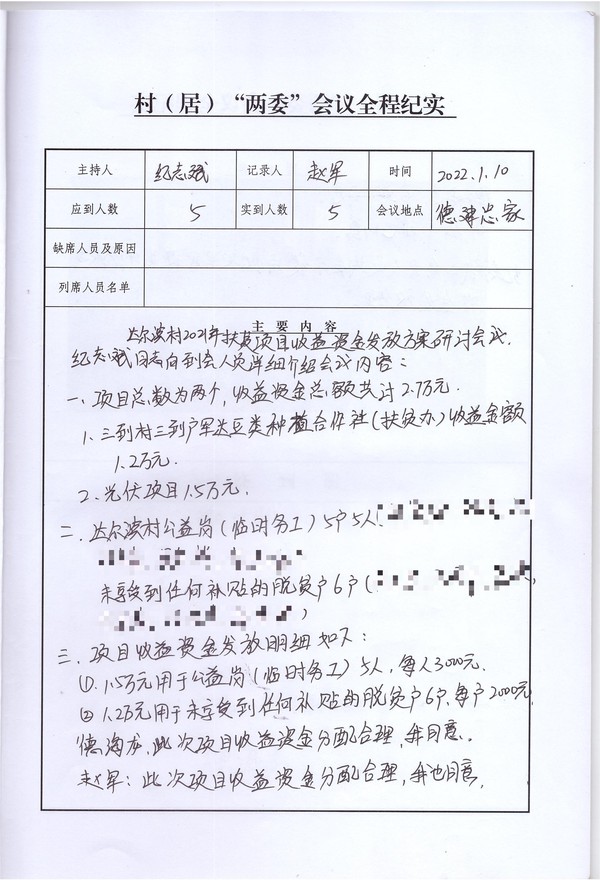 村（居）“两委”会议全程纪实
主持人 纪志斌 记录人 赵军 时间 2022.1.10
应到人数 5 实到人数 5 会议地点 德建忠家
缺席人员及原因
列席人员名单
主要内容
达尔滨村2021年扶贫项目收益资金发放方案研讨会议.
纪志斌同志向到会人员详细介绍会议内容：
一、项目总数为两个，收益资金总额共计2.7万元.
1、三到村三到户军达豆类种植合作社（扶贫办）收益金额
1.2万元.
2、光伏项目1.5万元.
二、达尔滨村公益岗（临时务工）5户5人（
未享受到任何补贴的脱贫户6户（
）
三、项目收益资金发放明细如下：
①1.5万元用于公益岗（临时务工）5人，每人3000元.
②1.2万元用于未享受到任何补贴的脱贫户6户，每户2000元
德海龙，此次项目收益资金分配合理，我同意.
赵军：此次项目收益资金分配合理，我也同意.